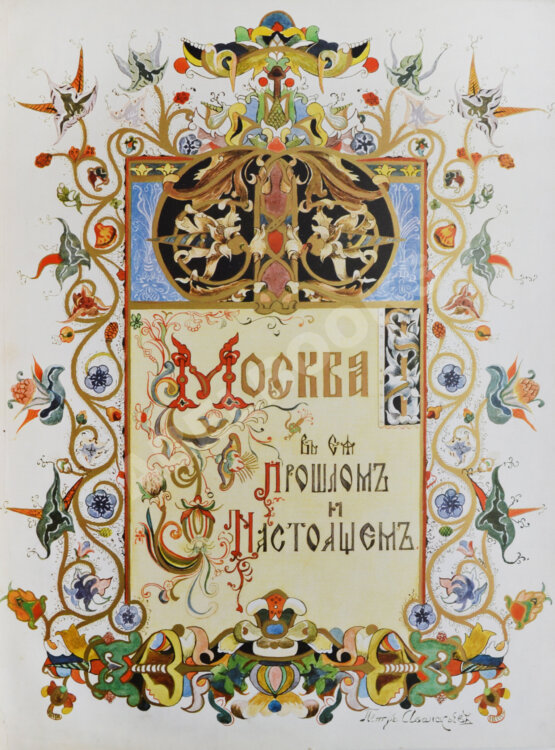 Москва
въ еѧ
Прошломъ
и
Настоѧщемъ.
Петръ